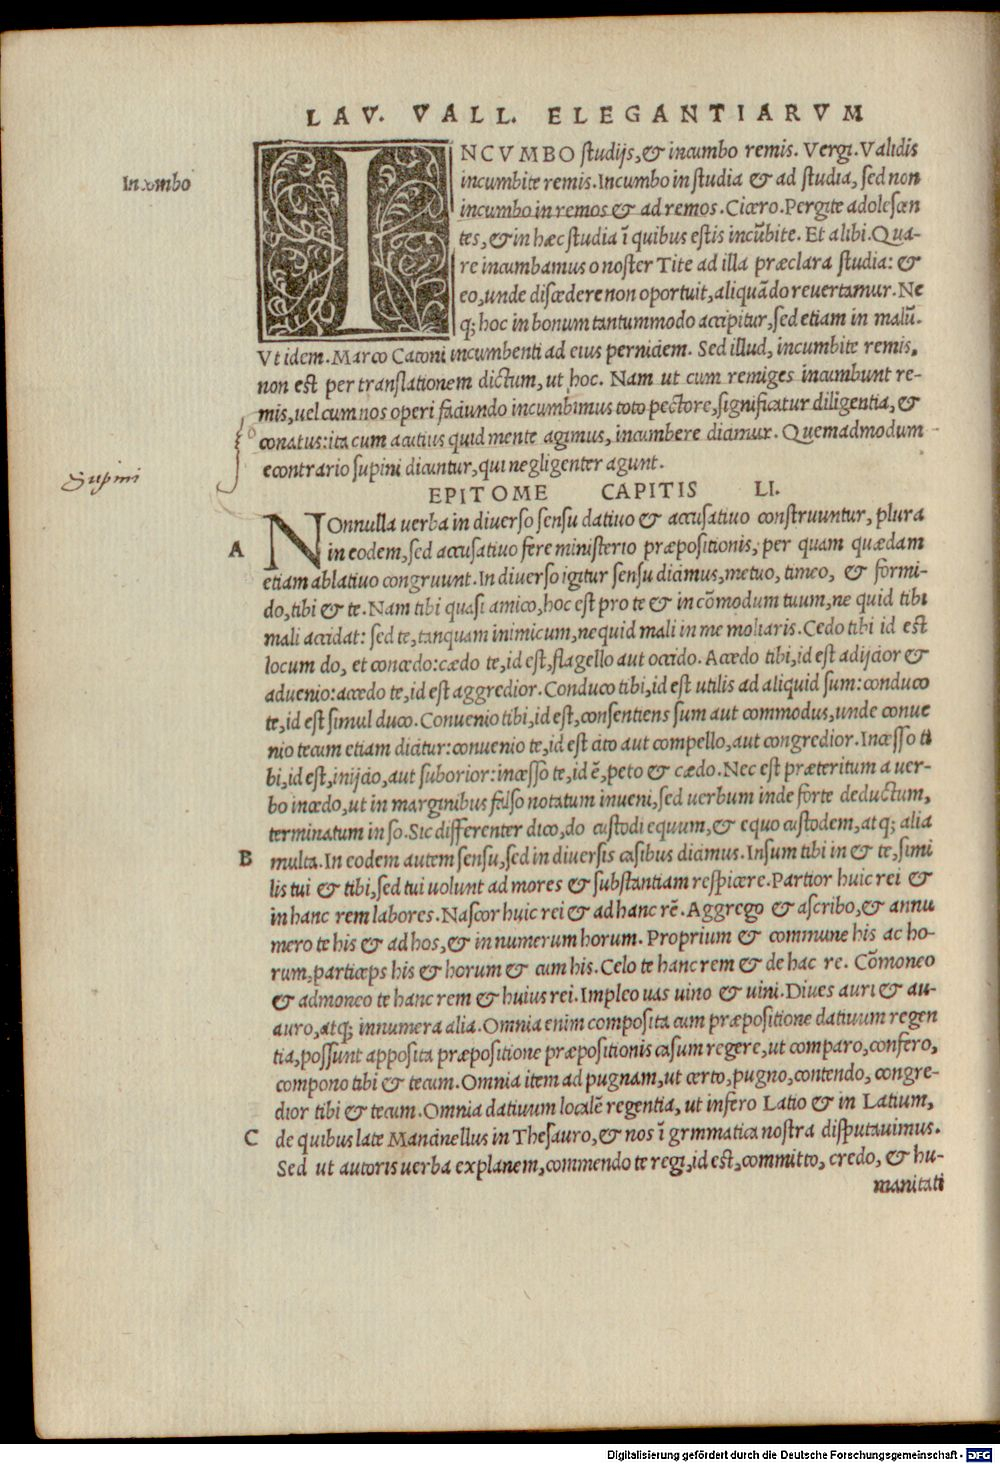 LAV. VALL. ELEGANTIARVM
Incumbo
INCVMBO studijs, & incumbo remis. Vergi. Validis
incumbite remis. Incumbo in studia & ad studia, sed non
incumbo in remos & ad remos. Cicero. Pergite adolescen
tes, & in hæc studia ĩ quibus estis incũbite. Et alibi. Qua-
re incumbamus o noster Tite ad illa præclara studia: &
eo, unde discedere non oportuit, aliquãdo revertamur. Ne
q; hoc in bonum tantummodo accipitur, sed etiam in malũ.
Vt idem. Marco Catoni incumbenti ad eius perniciem. Sed illud, incumbite remis,
non est per translationem dictum, ut hoc. Nam ut cum remiges incumbunt re-
mis, uel cum nos operi faciundo incumbimus toto pectore, significatur diligentia, &
conatus: ita cum acutius quid mente agimus, incumbere dicimur. Quemadmodum
econtrario supini dicuntur, qui negligenter agunt.
Supini
EPITOME CAPITIS LI.
NOnnulla uerba in diuerso sensu datiuo & accusatiuo construuntur, plura
A
in eodem, sed accusatiuo fere ministerio præpositionis, per quam quædam
etiam ablatiuo congruunt. In diuerso igitur sensu dicimus, metuo, timeo, & formi-
do, tibi & te. Nam tibi quasi amico, hoc est pro te & in cõmodum tuum, ne quid tibi
mali accidat: sed te, tanquam inimicum, ne quid mali in me moliaris. Cedo tibi id est
locum do, et concedo: cædo te, id est, flagello aut occido. Accedo tibi, id est adijcior &
aduenio: accedo te, id est aggredior. Conduco tibi, id est utilis ad aliquid sum: conduco
te, id est simul duco. Conuenio tibi, id est, consentiens sum aut commodus, unde conue
nio tecum etiam dicitur: conuenio te, id est cito aut compello, aut congredior. Incesso ti
bi, id est, inijcio, aut suborior: incesso te, id ẽ, peto & cædo. Nec est præteritum a uer-
bo incedo, ut in marginibus falso notatum inueni, sed uerbum inde forte deductum,
terminatum in so. Sic differenter dico, do custodi equum, & equo custodem, atq; alia
B
multa. In eodem autem sensu, sed in diuersis casibus dicimus. Insum tibi in & te, simi
lis tui & tibi, sed tui uolunt ad mores & substantiam respicere. Partior huic rei &
in hanc rem labores. Nascor huic rei & ad hanc rẽ. Aggrego & ascribo, & annu
mero te his & ad hos, & in numerum horum. Proprium & commune his ac ho-
rum, particeps his & horum & cum his. Celo te hanc rem & de hac re. Cõmoneo
& admoneo te hanc rem & huius rei. Impleo uas uino & uini. Diues auri & au-
auro, atq; innumera alia. Omnia enim composita cum præpositione datiuum regen
tia, possunt apposita præpositione præpositionis casum regere, ut comparo, confero,
compono tibi & tecum. Omnia item ad pugnam, ut certo, pugno, contendo, congre-
dior tibi & tecum. Omnia datiuum localẽ regentia, ut infero Latio & in Latium,
C
de quibus late Mancinellus in Thesauro, & nos ĩ grmmatica nostra disputauimus.
Sed ut autoris uerba explanem, commendo te regi, id est, committo, credo, & hu-
manitati
Digitalisierung gefördert durch die Deutsche Forschungsgemeinschaft - DFG